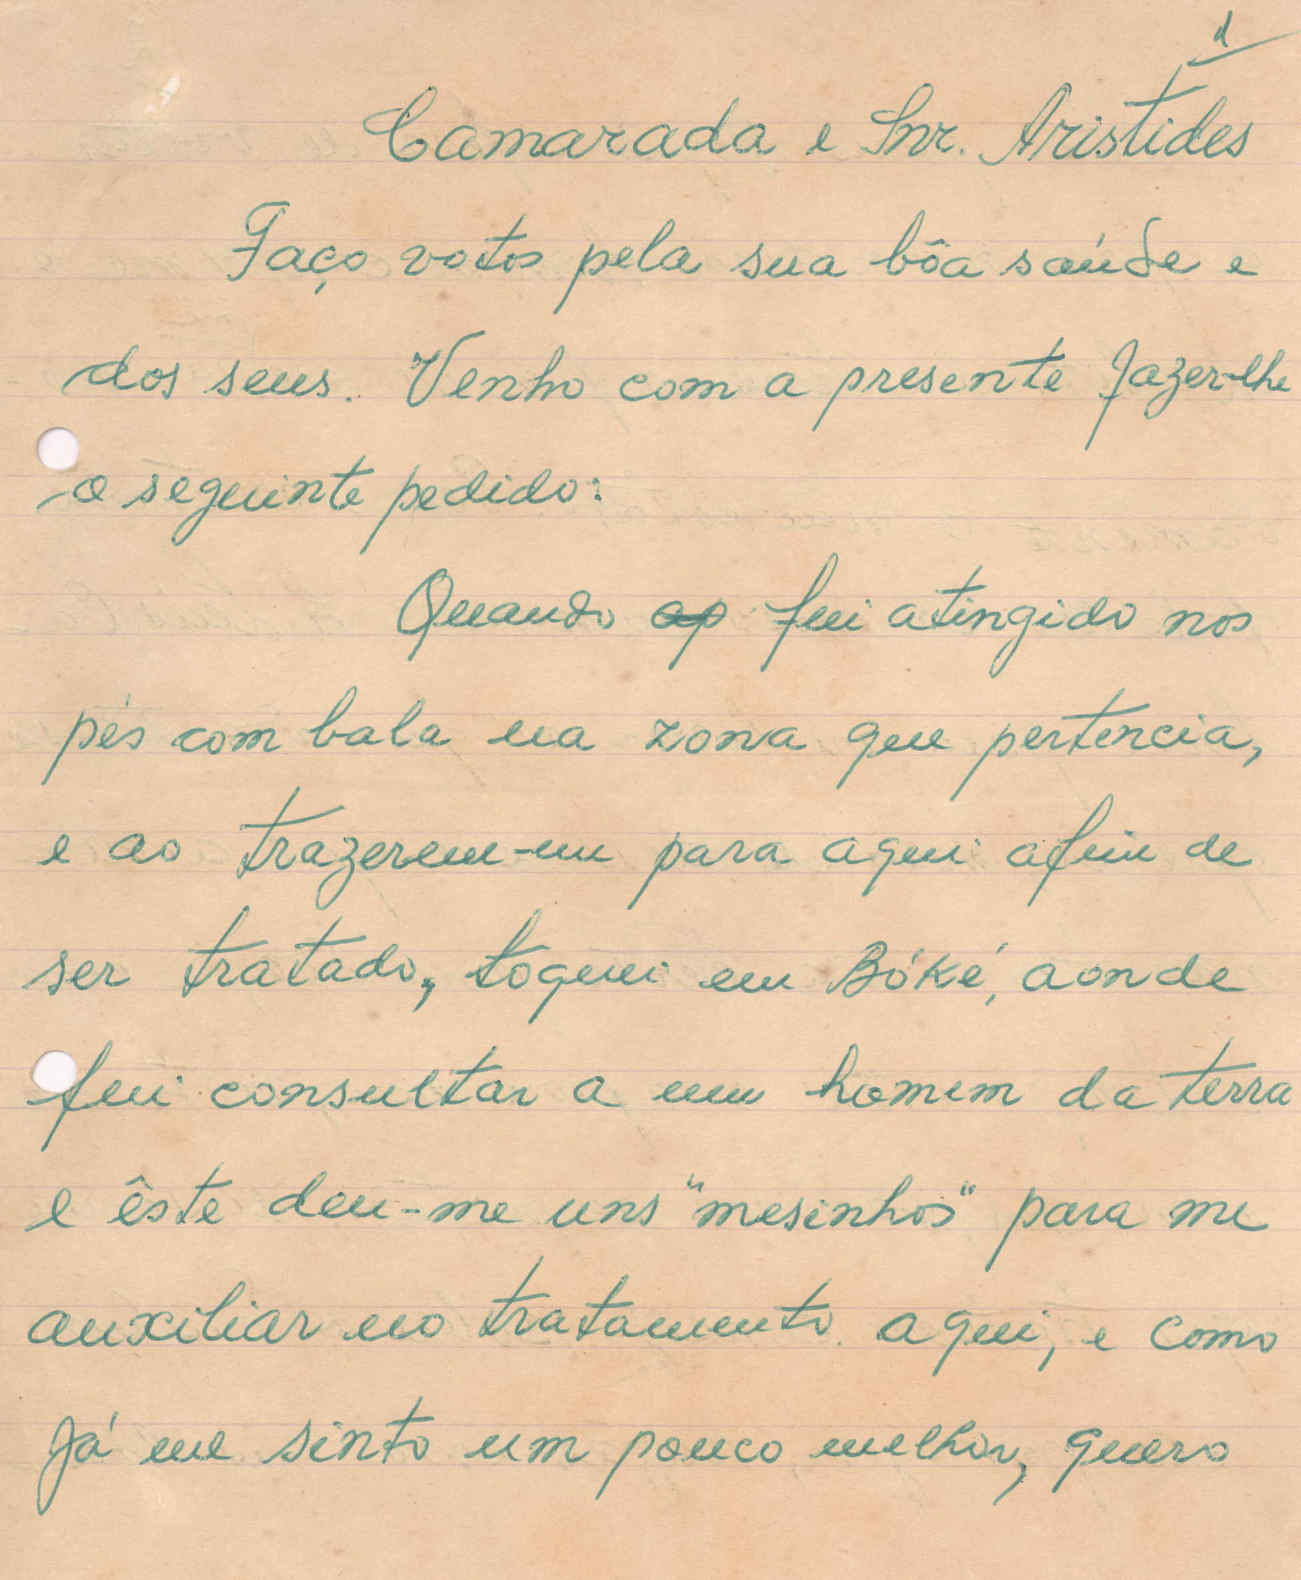 Camarada e Snr. Aristides
Faço votos pela sua bôa saúde e
dos seus. Venho com a presente fazer-lhe
o seguinte pedido:
Quando ap fui atingido nos
pés com bala na zona que pertencia,
e ao trazerem-me para aqui afim de
ser tratado, toquei em Bóké, aonde
fui consultar a um homem da terra
e êste deu-me uns "mesinhos" para me
auxiliar no tratamento aqui, e como
já me sinto um pouco melhor, quero